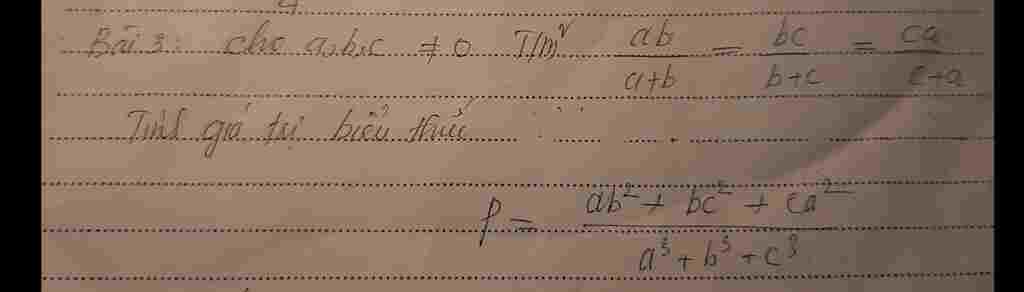 Bài 3: cho a,b,c ≠ 0 T/m ab/(a+b) = bc/(b+c) = ca/(c+a)
Tính giá trị biểu thức
P = (ab² + bc² + ca²)/(a³ + b³ + c³)